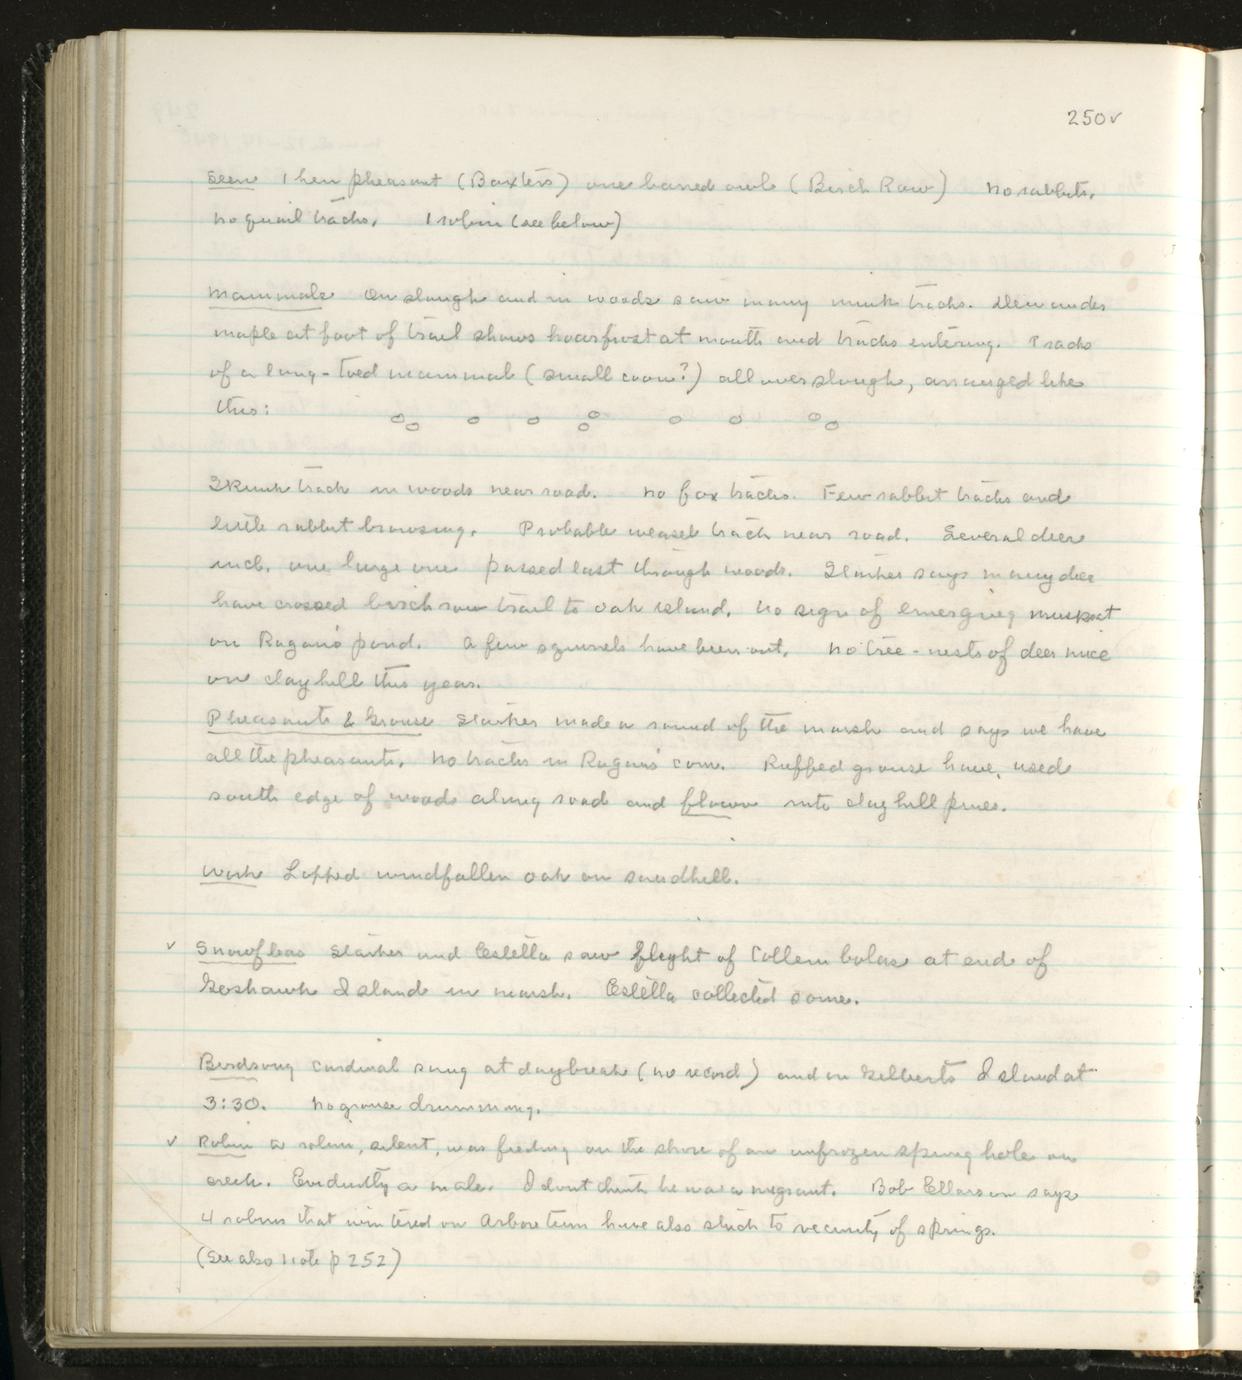 250v
Seen 1 hen pheasant (Baxters) one barred owl (Birch Row) No rabbits,
no quail tracks. 1 robin (see below)
Mammals On slough and in woods saw many mink tracks. Den under
maple at foot of trail shows hoarfrost at mouth and tracks entering. Tracks
of a long-toed mammal (small coon?) all over slough, arranged like
this:
Skunk track in woods near road. No fox tracks. Few rabbit tracks and
little rabbit browsing. Probable weasel track near road. Several deer
incl. one large one passed east through woods. Starker says many deer
have crossed birch row trail to oak island. No sign of emerging muskrat
on Ragan's pond. A few squirrels have been out. No tree-nests of deer mice
on clay hill this year.
Pheasants & Grouse Starker made a round of the marsh and says we have
all the pheasants. No tracks in Ragan's corn. Ruffed grouse have used
south edge of woods along road and flown into clay hill pines.
Work Lopped windfallen oak on sandhill.
v Snowfleas Starker and Estella saw flight of Collembolae at end of
Goshawk Island in marsh. Estella collected some.
Birdsong Cardinal sang at daybreak (no record) and on Gilberts Island at
3:30. No grouse drumming.
v Robin A robin, silent, was feeding on the shore of an unfrozen spring hole on
creek. Evidently a male. I dont think he was a migrant. Bob Ellarson says
4 robins that wintered on Arboretum have also stuck to vicinity of springs.
(See also note p 252)